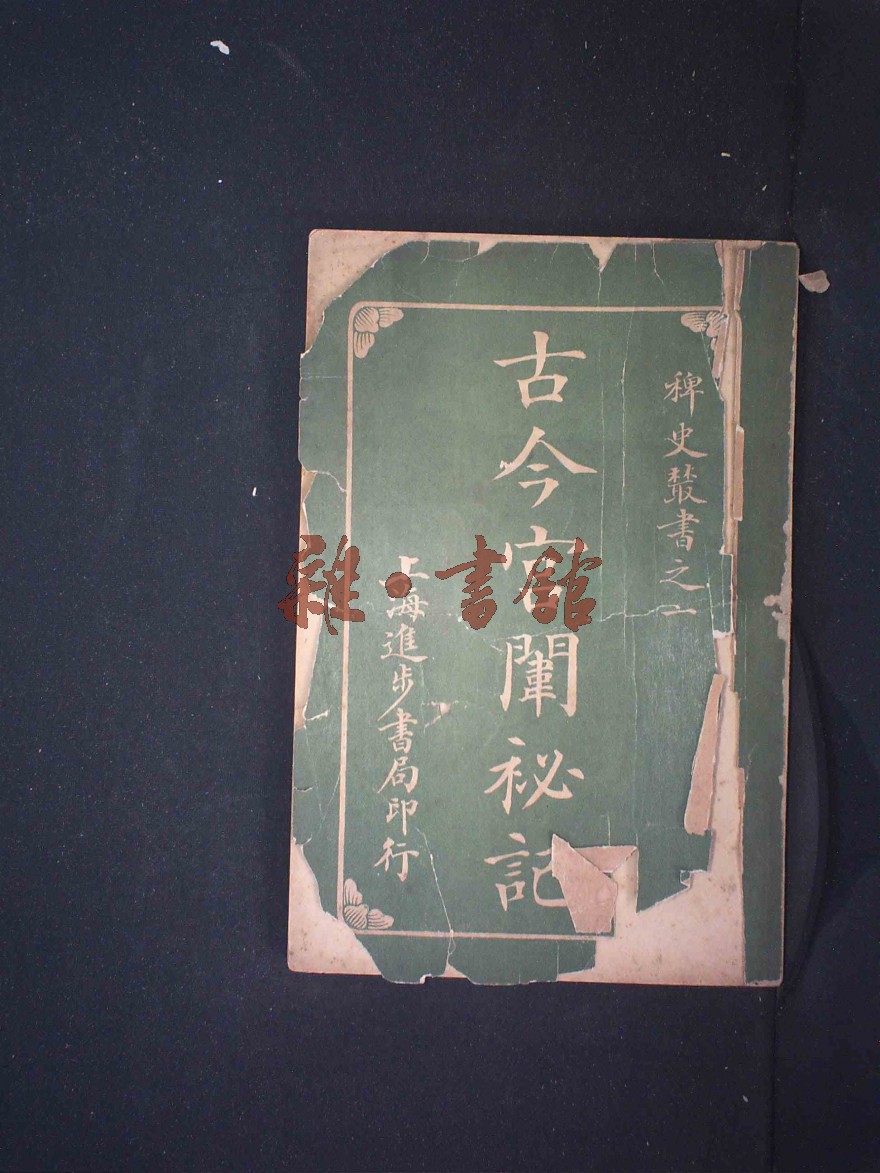 稗史叢書之一
古今宮闈秘記
上海進步書局印行
雜·書館